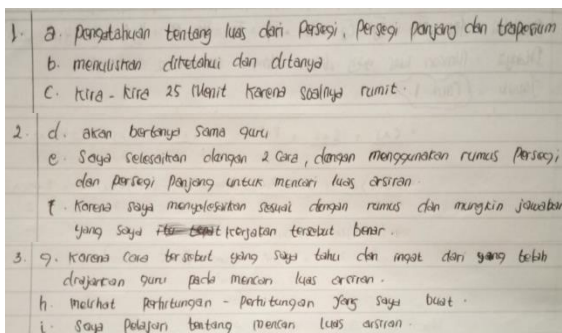 1. a. Pengetahuan tentang luas dari Persegi, Persegi Panjang dan trapesium
b. menuliskan diketahui dan ditanya
c. Kira - kira 25 Menit karena soalnya rumit.
2. d. akan bertanya sama guru
e. Saya selesaikan dengan 2 cara, dengan menggunakan rumus Persegi
dan persegi Panjang untuk mencari luas arsiran.
f. Karena saya menyelesaikan sesuai dengan rumus dan mungkin jawaban
yang saya kerjakan tersebut benar.
3. g. Karena cara tersebut yang saya tahu dan ingat dari yang telah
diajarkan guru pada mencari luas arsiran.
h. melihat Perhitungan - Perhitungan yang saya buat.
i. Saya Pelajari tentang mencari luas arsiran.